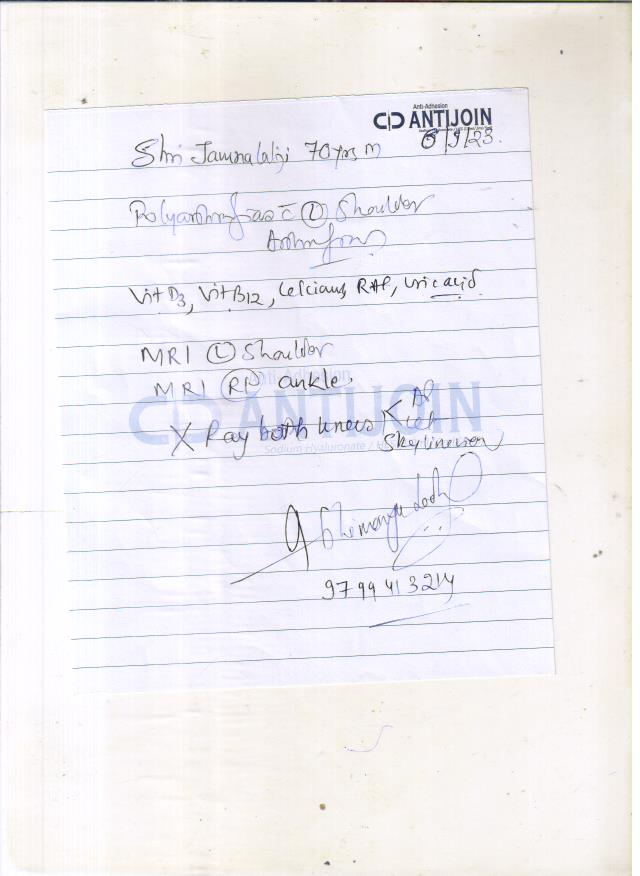 Anti-Adhesion
ANTIJOIN
6/9/23.
Shri Jamnalalji 70 yrs m
Polyarthralgias c̄ (L) Shoulder
Vit D3, Vit B12, Calcium, RAF, Uric acid
MRI (L) Shoulder
MRI (Rt) ankle
Anti-Adhesion
ANTIJOIN
X Ray both knees < AP
Skyline view
Sodium Hyaluronate /
9799413214